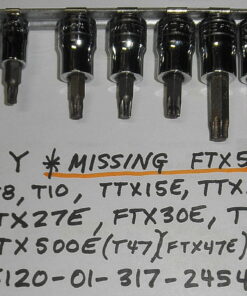 Y * MISSING FTX5
8, T10, TTX15E, TTX
TX27E, FTX30E, T
TX500E (T47)(FTX47E)
5120-01-317-2454